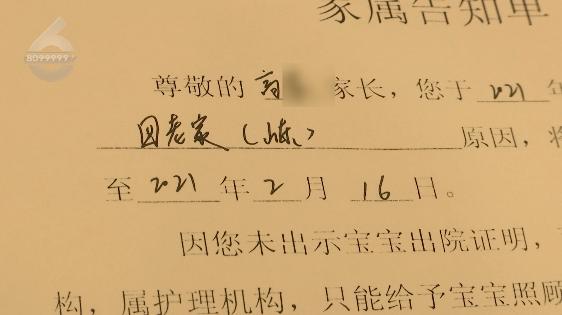 家属告知单
8099999
尊敬的 高 家长，您于 2021 年
回老家（山东） 原因，将
至 2021 年 2 月 16 日。
因您未出示宝宝出院证明，
构，属护理机构，只能给予宝宝照顾